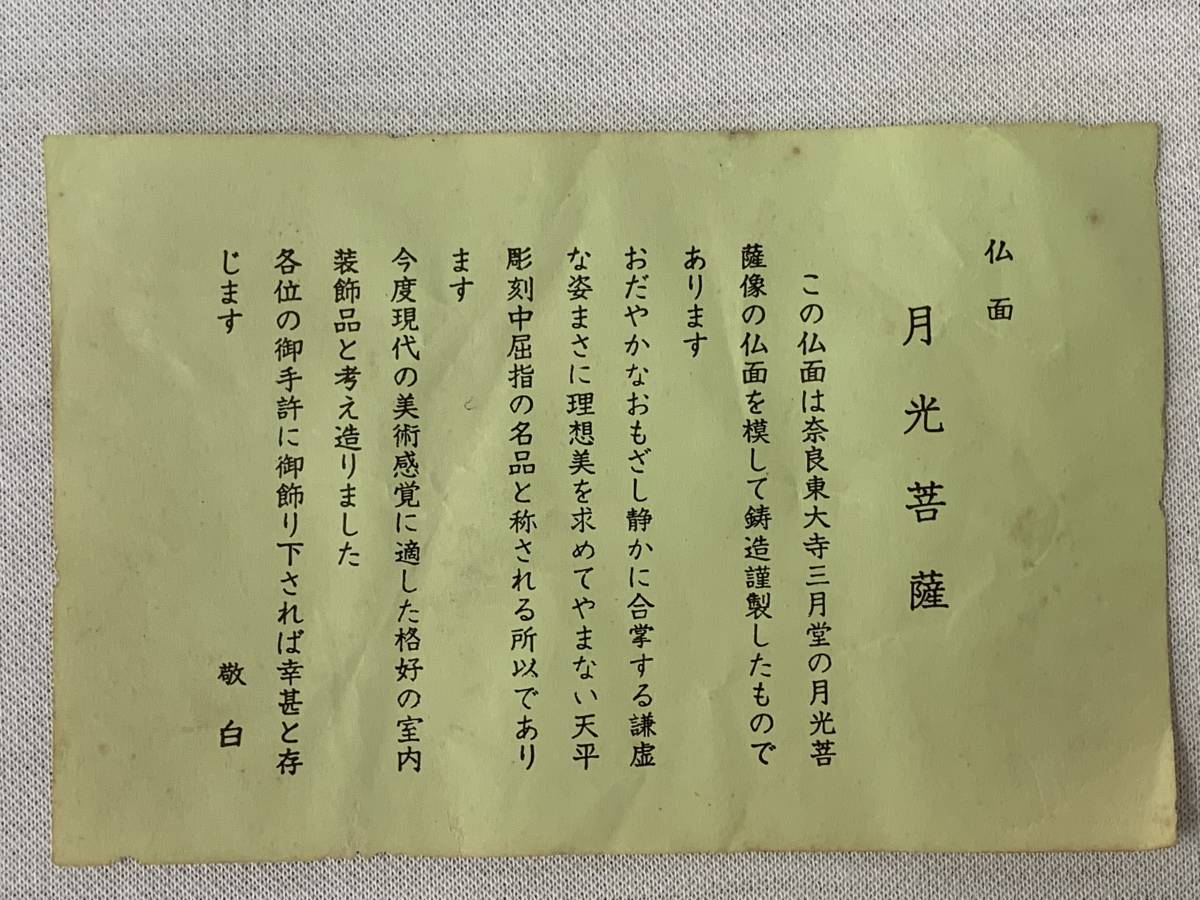 仏面
月光菩薩
この仏面は奈良東大寺三月堂の月光菩
薩像の仏面を模して鋳造謹製したもので
あります
おだやかなおもざし静かに合掌する謙虚
な姿まさに理想美を求めてやまない天平
彫刻中屈指の名品と称される所以であり
ます
今度現代の美術感覚に適した格好の室内
装飾品と考え造りました
各位の御手許に御飾り下されば幸甚と存
じます
敬白